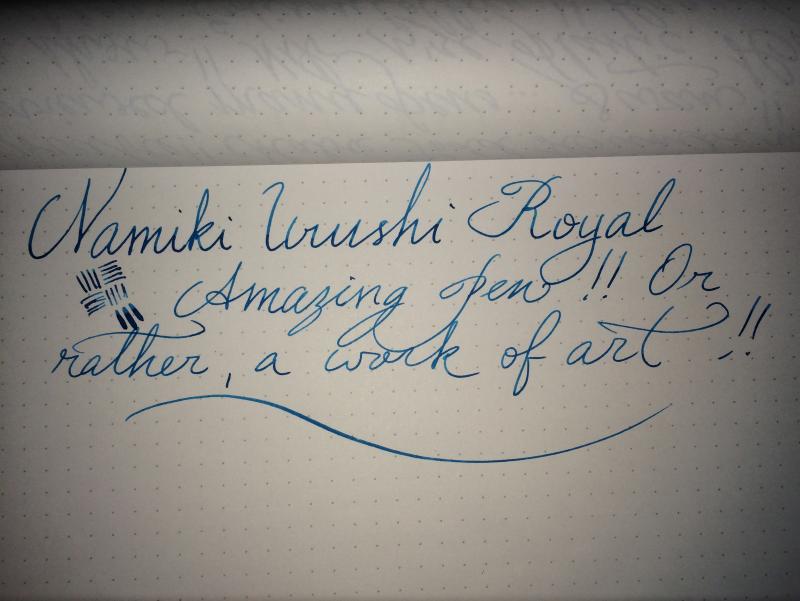 Namiki Urushi Royal
Amazing pen !! Or
rather, a work of art !!